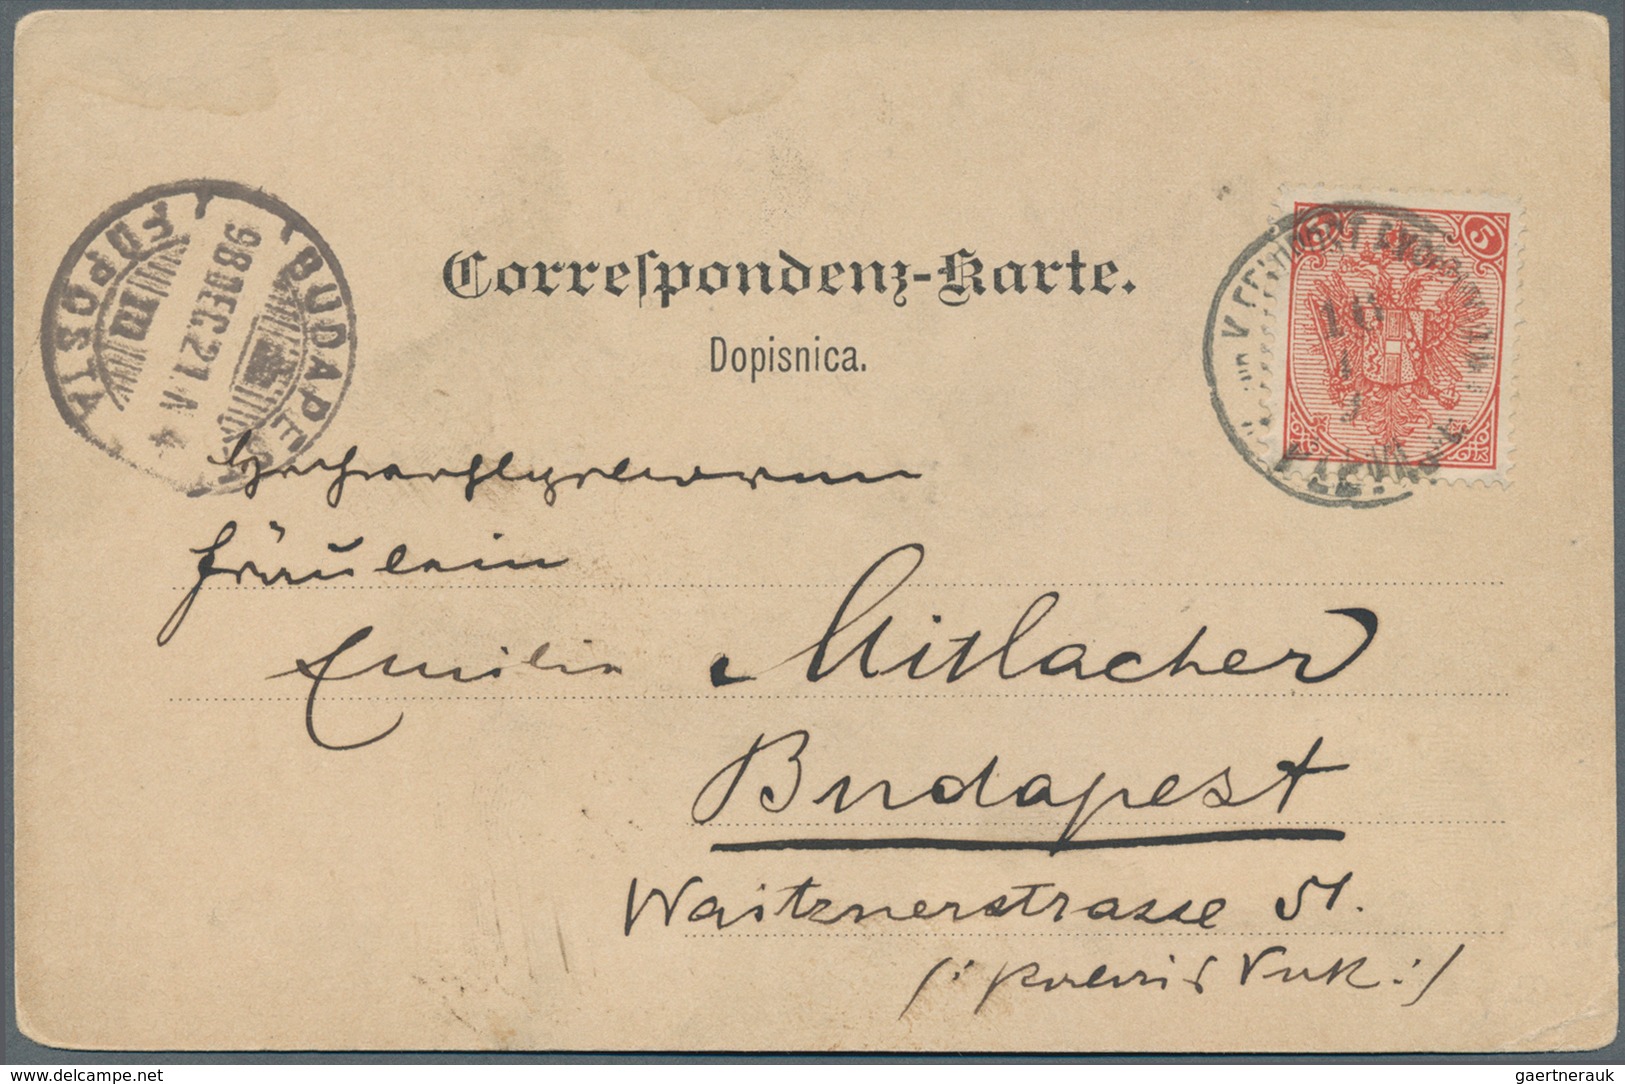 Correſpondenz-Karte.
Dopisnica.
BUDAPEST
98 DEC. 21. N 4
FŐPOSTA
5 5
Hochwohlgeborenen
Fräulein
Emilie Mitlacher
Budapest
Waitznerstrasse 51.
(: Palais Vuk :)
delcampe.net
gaertnerauk